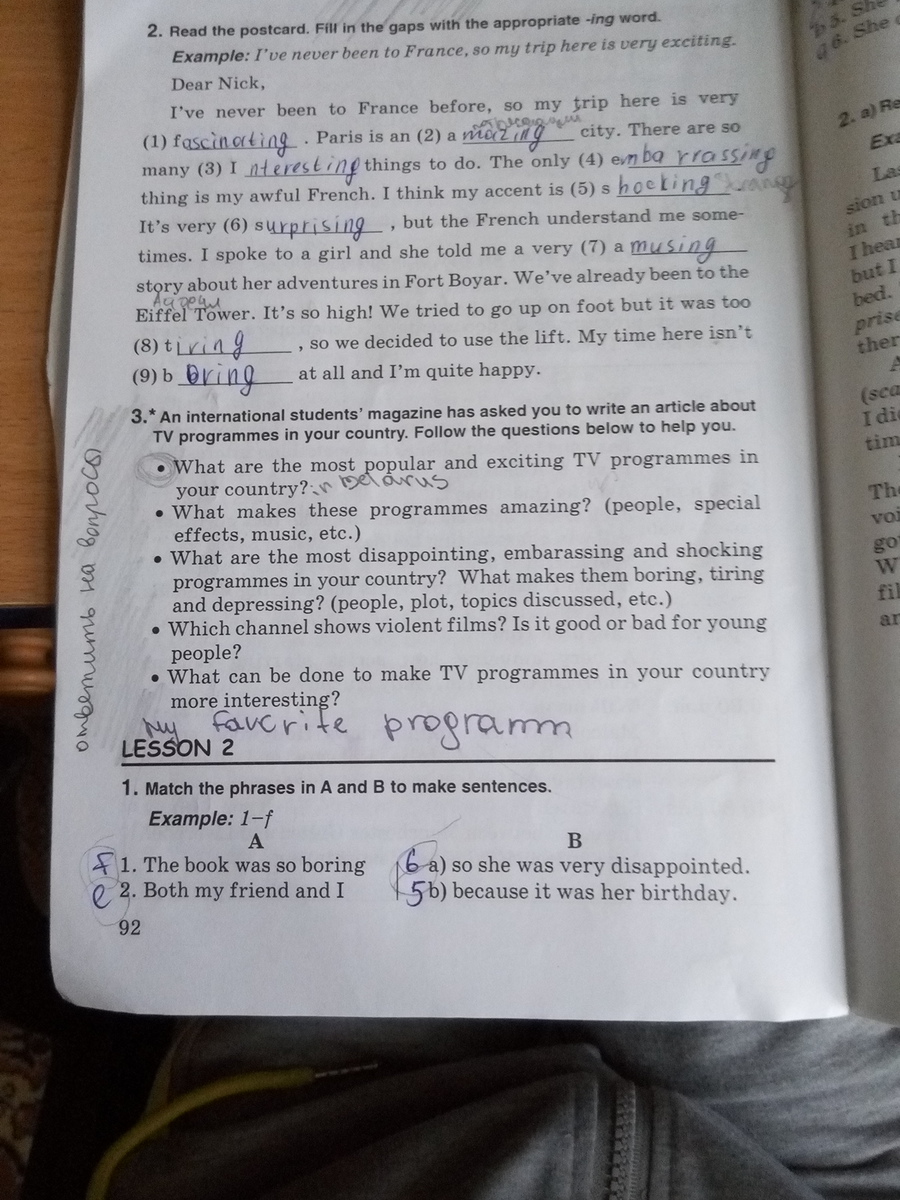 2. Read the postcard. Fill in the gaps with the appropriate -ing word.
Example: I've never been to France, so my trip here is very exciting.
Dear Nick,
I've never been to France before, so my trip here is very
(1) fascinating. Paris is an (2) amazing city. There are so
many (3) Interesting things to do. The only (4) embarrassing
thing is my awful French. I think my accent is (5) shocking.
It's very (6) surprising, but the French understand me some-
times. I spoke to a girl and she told me a very (7) amusing
story about her adventures in Fort Boyar. We've already been to the
Eiffel Tower. It's so high! We tried to go up on foot but it was too
(8) tiring, so we decided to use the lift. My time here isn't
(9) boring at all and I'm quite happy.
3.* An international students' magazine has asked you to write an article about
TV programmes in your country. Follow the questions below to help you.
• What are the most popular and exciting TV programmes in
your country? in belarus
• What makes these programmes amazing? (people, special
effects, music, etc.)
• What are the most disappointing, embarassing and shocking
programmes in your country? What makes them boring, tiring
and depressing? (people, plot, topics discussed, etc.)
• Which channel shows violent films? Is it good or bad for young
people?
• What can be done to make TV programmes in your country
more interesting?
ответить на вопросы
My favorite programm
LESSON 2
1. Match the phrases in A and B to make sentences.
Example: 1–f
A B
f 1. The book was so boring 6 a) so she was very disappointed.
e 2. Both my friend and I 5 b) because it was her birthday.
92
5. She
6. She
2. a) Re
Exa
La
sion u
in th
I hea
but I
bed.
prise
ther
A
(sca
I di
tim
Th
voi
go
W
fil
ar